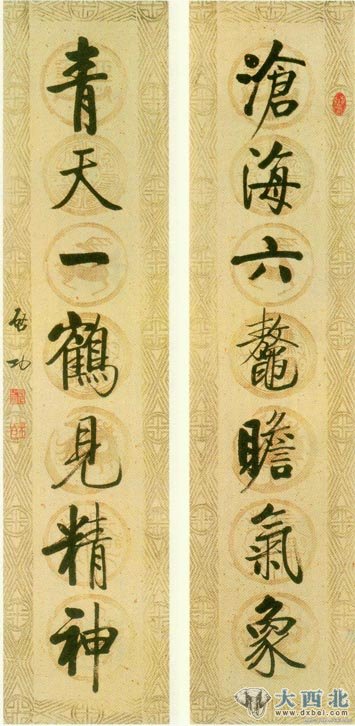 滄海六鼇瞻氣象
青天一鶴見精神
啟功
大西北
www.dxbei.com